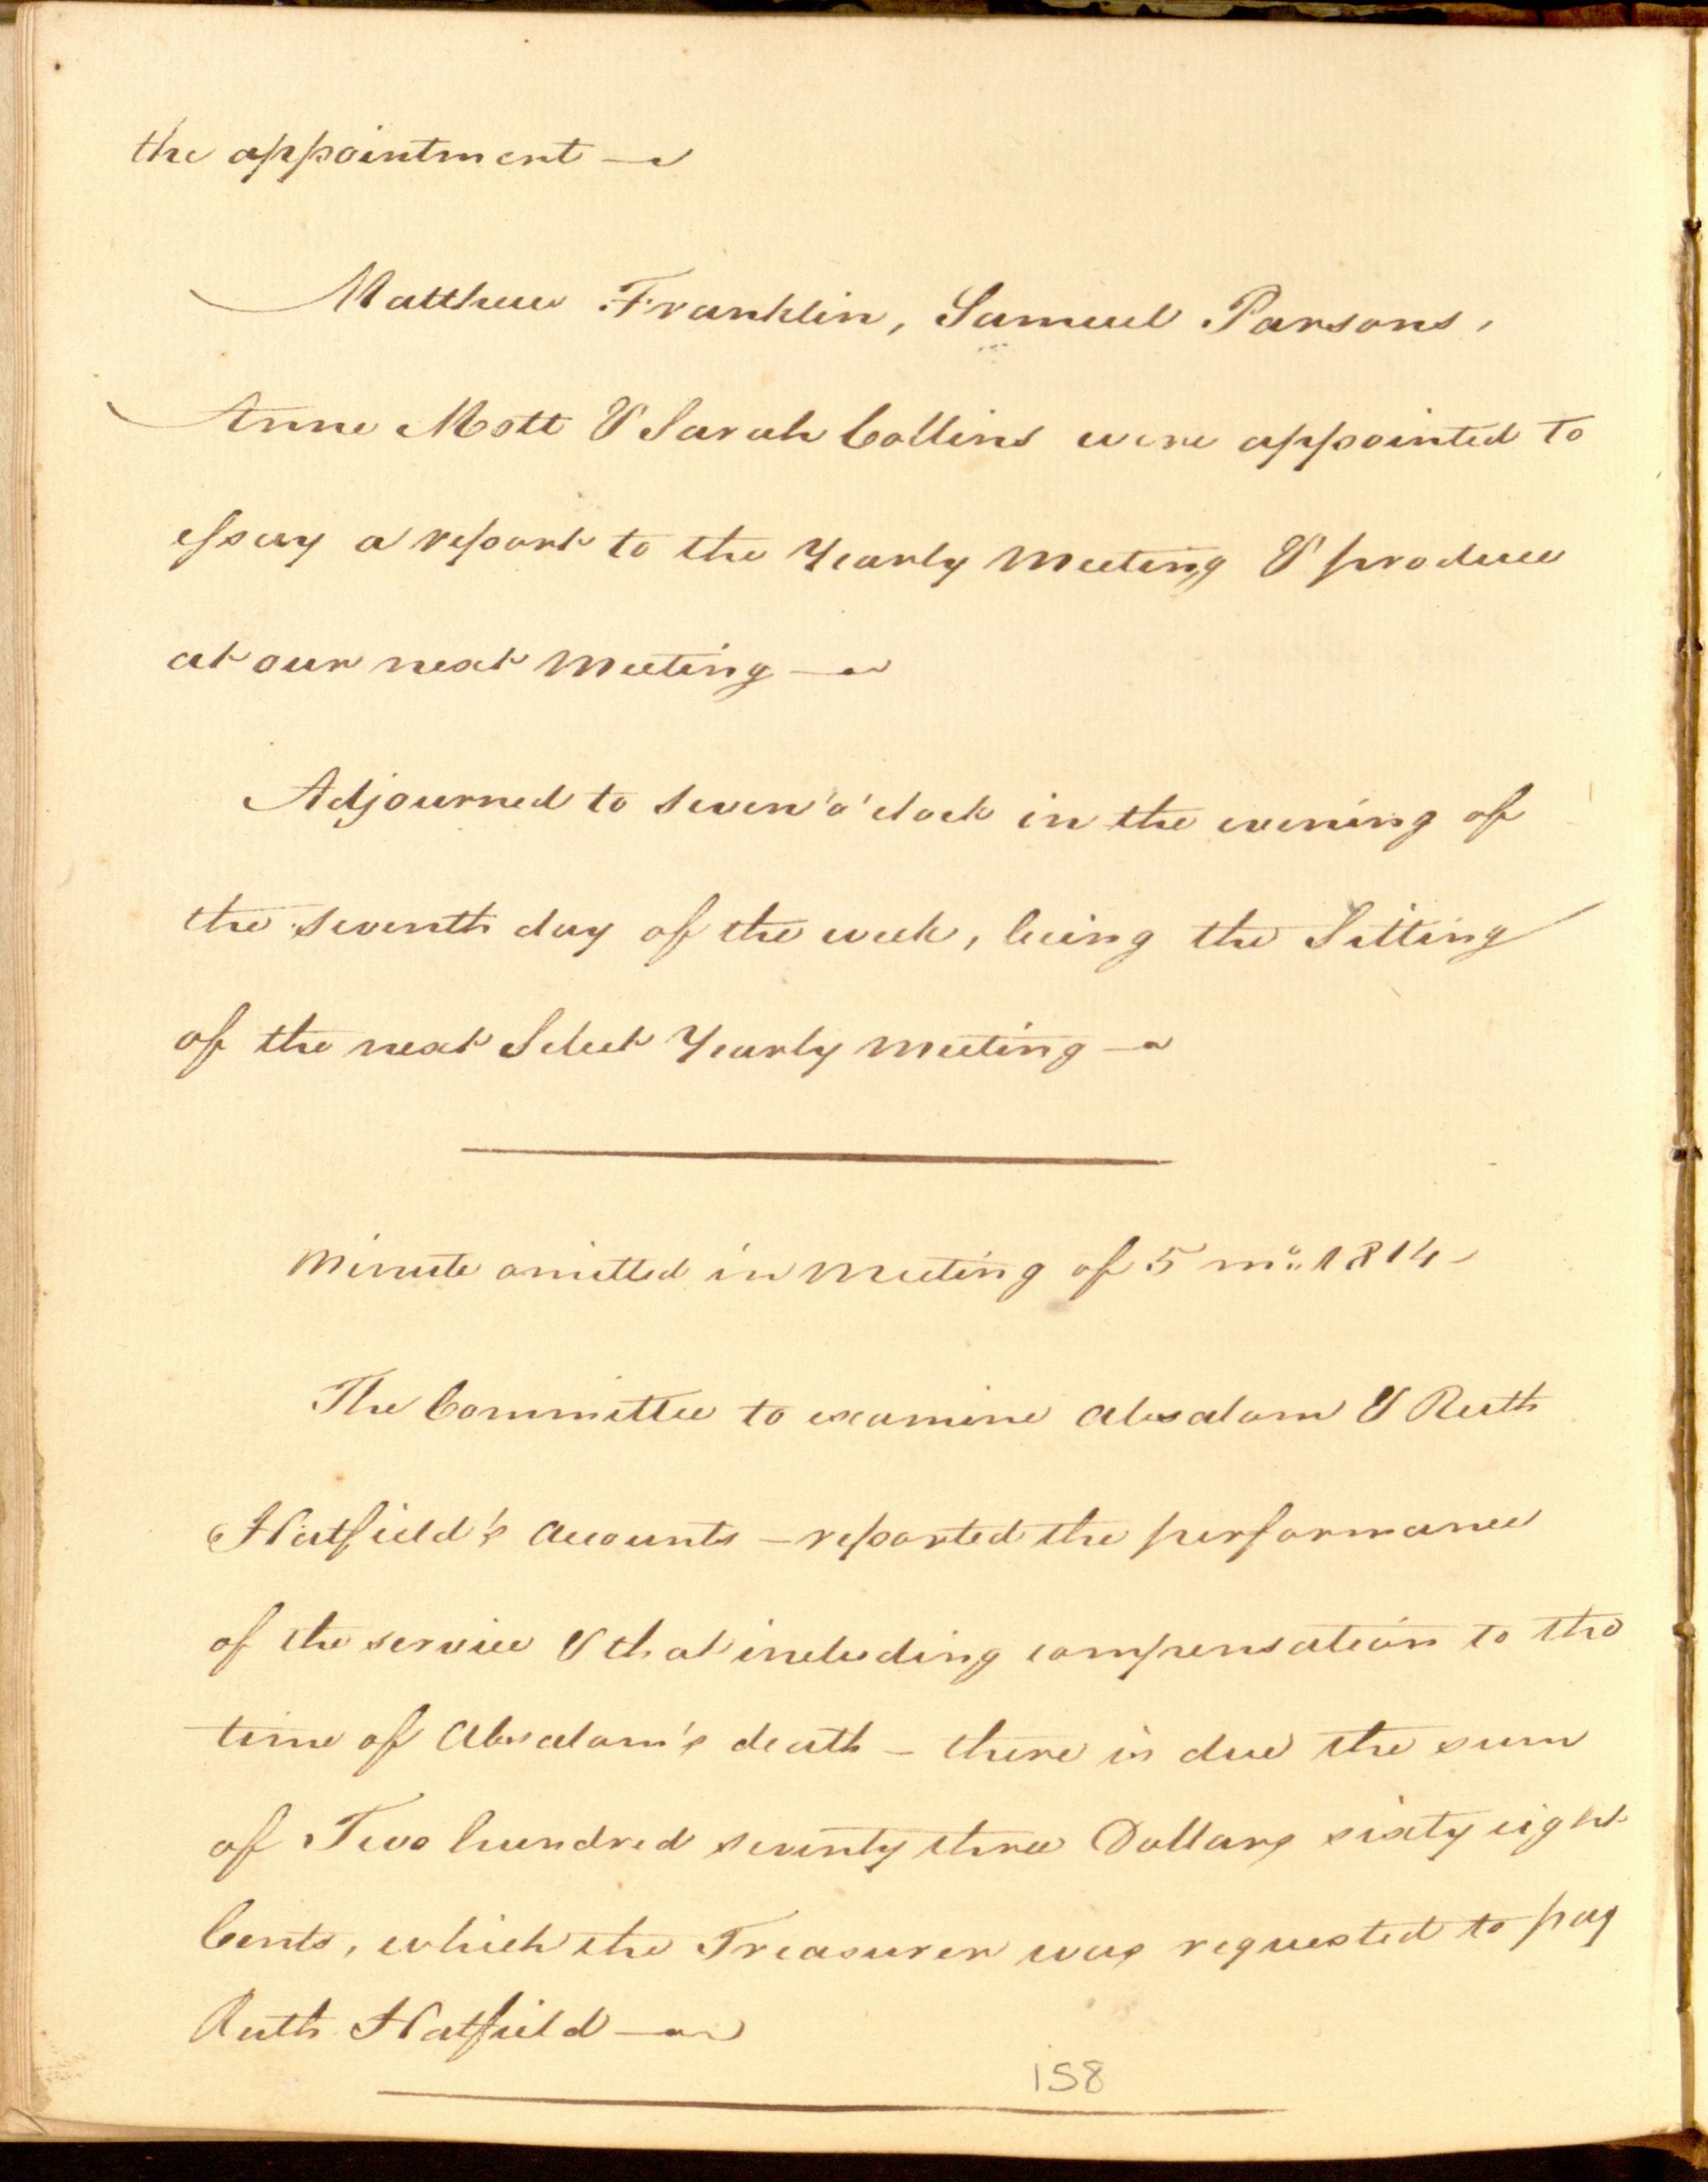 the appointment —
Matthew Franklin, Samuel Parsons,
Anne Mott & Sarah Collins were appointed to
essay a report to the Yearly Meeting & produce
at our next Meeting —
Adjourned to seven o'clock in the evening of
the seventh day of the week, being the Sitting
of the next Select Yearly Meeting —
Minute omitted in Meeting of 5 mo. 1814 -
The Committee to examine Absalom & Ruth
Hatfield's Accounts — reported the performance
of the service & that including compensation to the
time of Absalom's death — there is due the sum
of Two hundred seventy three Dollars sixty eight
Cents, which the Treasurer was requested to pay
Ruth Hatfield —
158